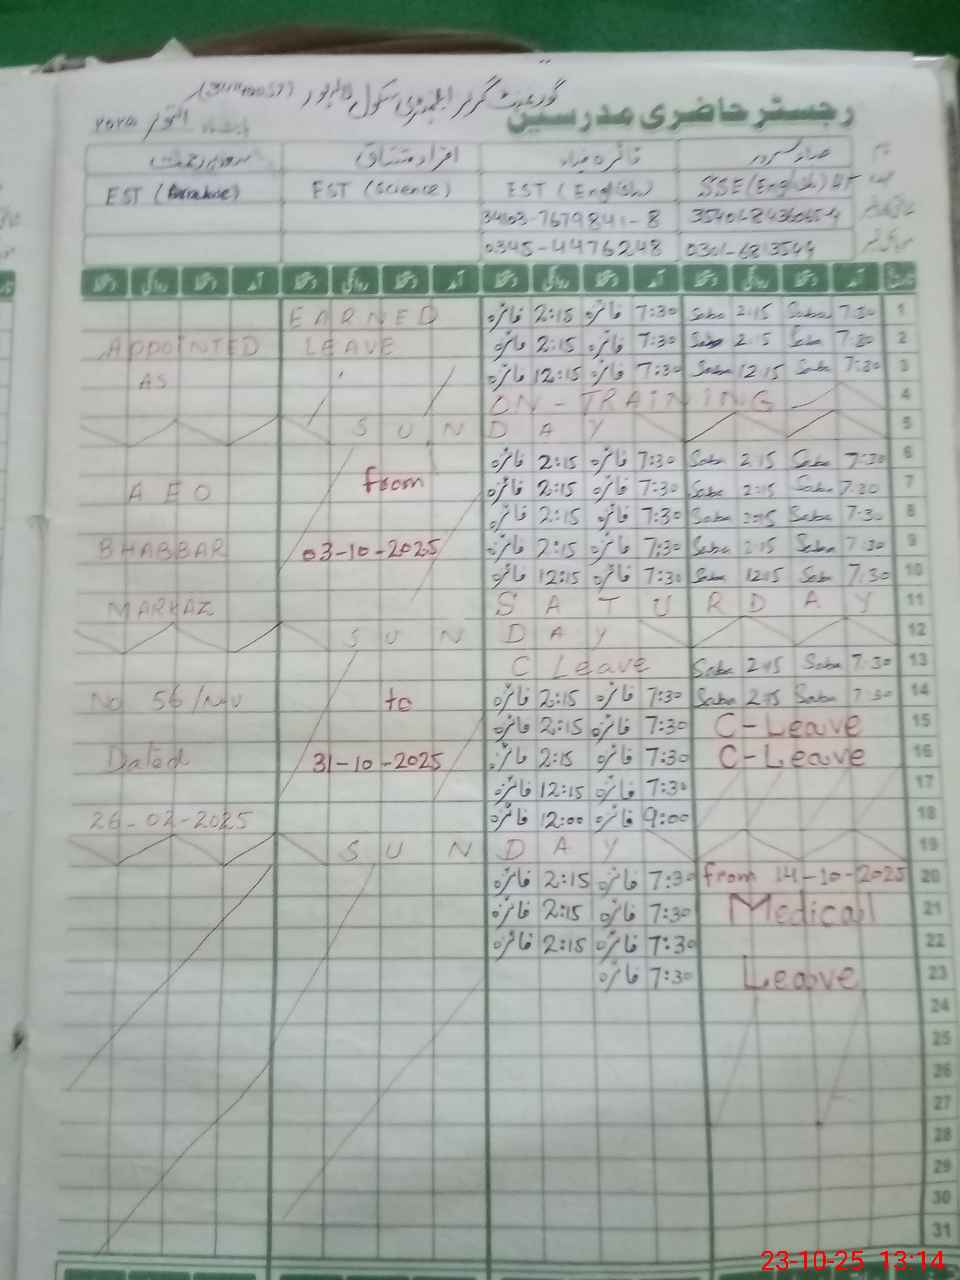 گورنمنٹ گرلز ایلیمنٹری سکول
رجسٹر حاضری مدرسین
اکتوبر ۲۰۲۵
EST (English) SSE (English)
EST (Science)
EST
34103-7679841-8
0345-4476248 0301-6813549
تاریخ آمد دستخط روانگی دستخط آمد دستخط روانگی دستخط آمد دستخط روانگی دستخط آمد دستخط روانگی دستخط
EARNED فائزہ 2:15 فائزہ 7:30 Saba 2:15 Saba 7:30 1
APPOINTED LEAVE فائزہ 2:15 فائزہ 7:30 Saba 2:15 Saba 7:30 2
AS فائزہ 12:15 فائزہ 7:30 Saba 12:15 Saba 7:30 3
ON-TRAINING 4
SUNDAY 5
فائزہ 2:15 فائزہ 7:30 Saba 2:15 Saba 7:30 6
AEO from فائزہ 2:15 فائزہ 7:30 Saba 2:15 Saba 7:30 7
فائزہ 2:15 فائزہ 7:30 Saba 2:15 Saba 7:30 8
BHABBAR 03-10-2025 فائزہ 2:15 فائزہ 7:30 Saba 2:15 Saba 7:30 9
فائزہ 12:15 فائزہ 7:30 Saba 12:15 Saba 7:30 10
MARKAZ SATURDAY 11
SUNDAY 12
C Leave Saba 2:15 Saba 7:30 13
No 56 to فائزہ 2:15 فائزہ 7:30 Saba 2:15 Saba 7:30 14
فائزہ 2:15 فائزہ 7:30 C-Leave 15
Dated 31-10-2025 فائزہ 2:15 فائزہ 7:30 C-Leave 16
فائزہ 12:15 فائزہ 7:30 17
26-02-2025 فائزہ 12:00 فائزہ 9:00 18
SUNDAY 19
فائزہ 2:15 فائزہ 7:30 from 14-10-2025 20
فائزہ 2:15 فائزہ 7:30 Medical 21
فائزہ 2:15 فائزہ 7:30 22
فائزہ 7:30 Leave 23
24
25
26
27
28
29
30
31
23-10-25 13:14